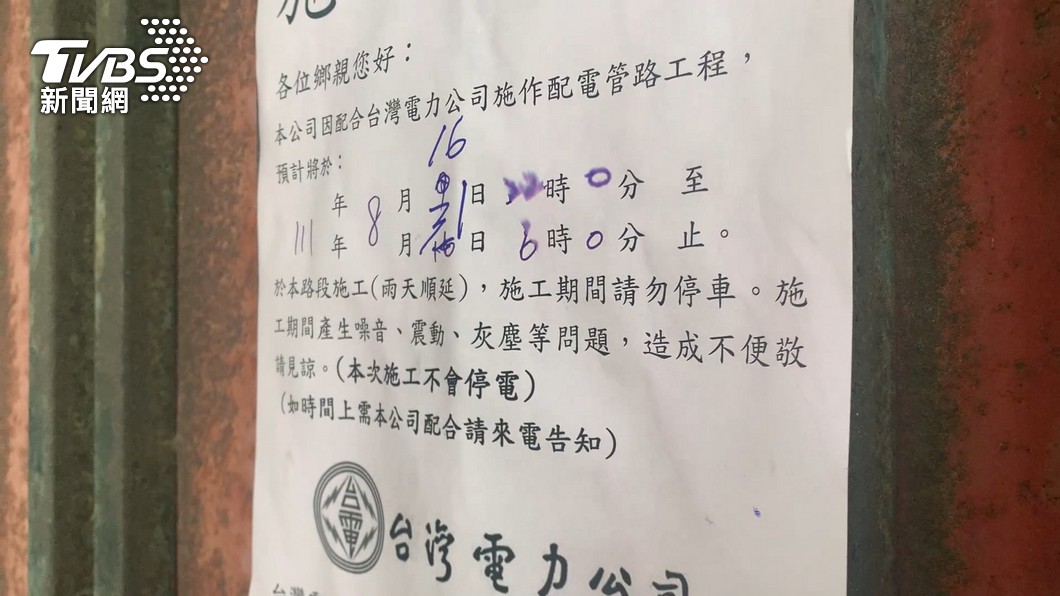 TVBS
新聞網
施
各位鄉親您好：
本公司因配合台灣電力公司施作配電管路工程，
16
預計將於：
年 8 月 日 時 0 分 至
111 年 月 日 6 時 0 分 止。
於本路段施工(雨天順延)，施工期間請勿停車。施
工期間產生噪音、震動、灰塵等問題，造成不便敬
請見諒。(本次施工不會停電)
(如時間上需本公司配合請來電告知)
台電
台灣電力公司